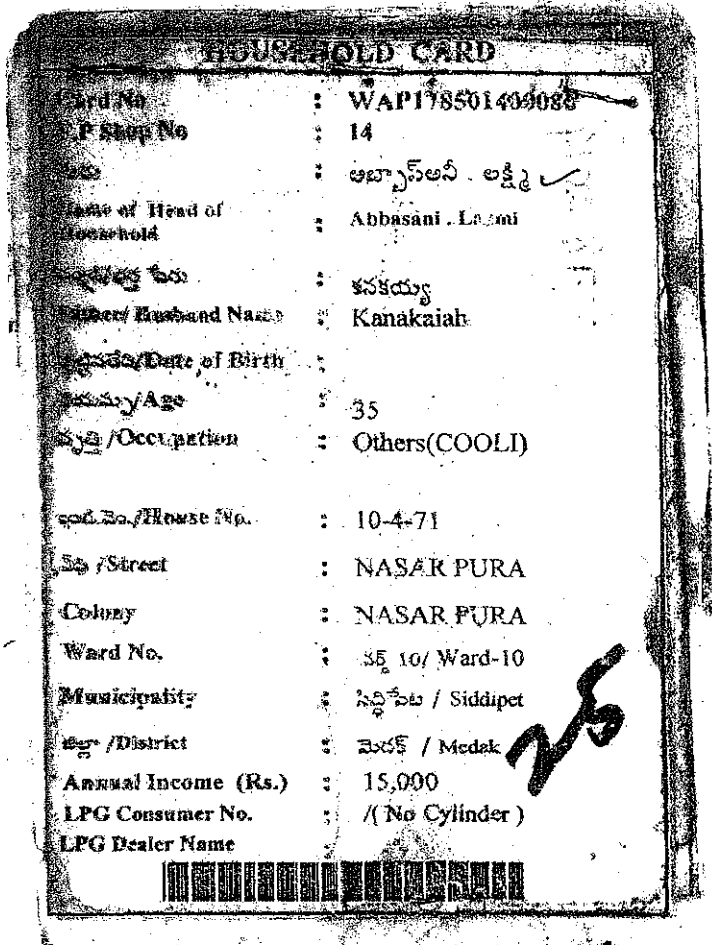 HOUSEHOLD CARD
Card No : WAP178501400086
F.P Shop No : 14
పేరు : అబ్బాసఅనీ . లక్ష్మి
Name of Head of Household : Abbasani . Laxmi
పేరు : కనకయ్య
Father/ Husband Name : Kanakaiah
/Date of Birth :
/Age : 35
వృత్తి /Occupation : Others(COOLI)
/House No. : 10-4-71
వీధి /Street : NASAR PURA
Colony : NASAR PURA
Ward No. : వార్డ్ 10/ Ward-10
Municipality : సిద్దిపేట / Siddipet
జిల్లా /District : మెదక్ / Medak
Annual Income (Rs.) : 15,000
LPG Consumer No. : /( No Cylinder )
LPG Dealer Name :
25